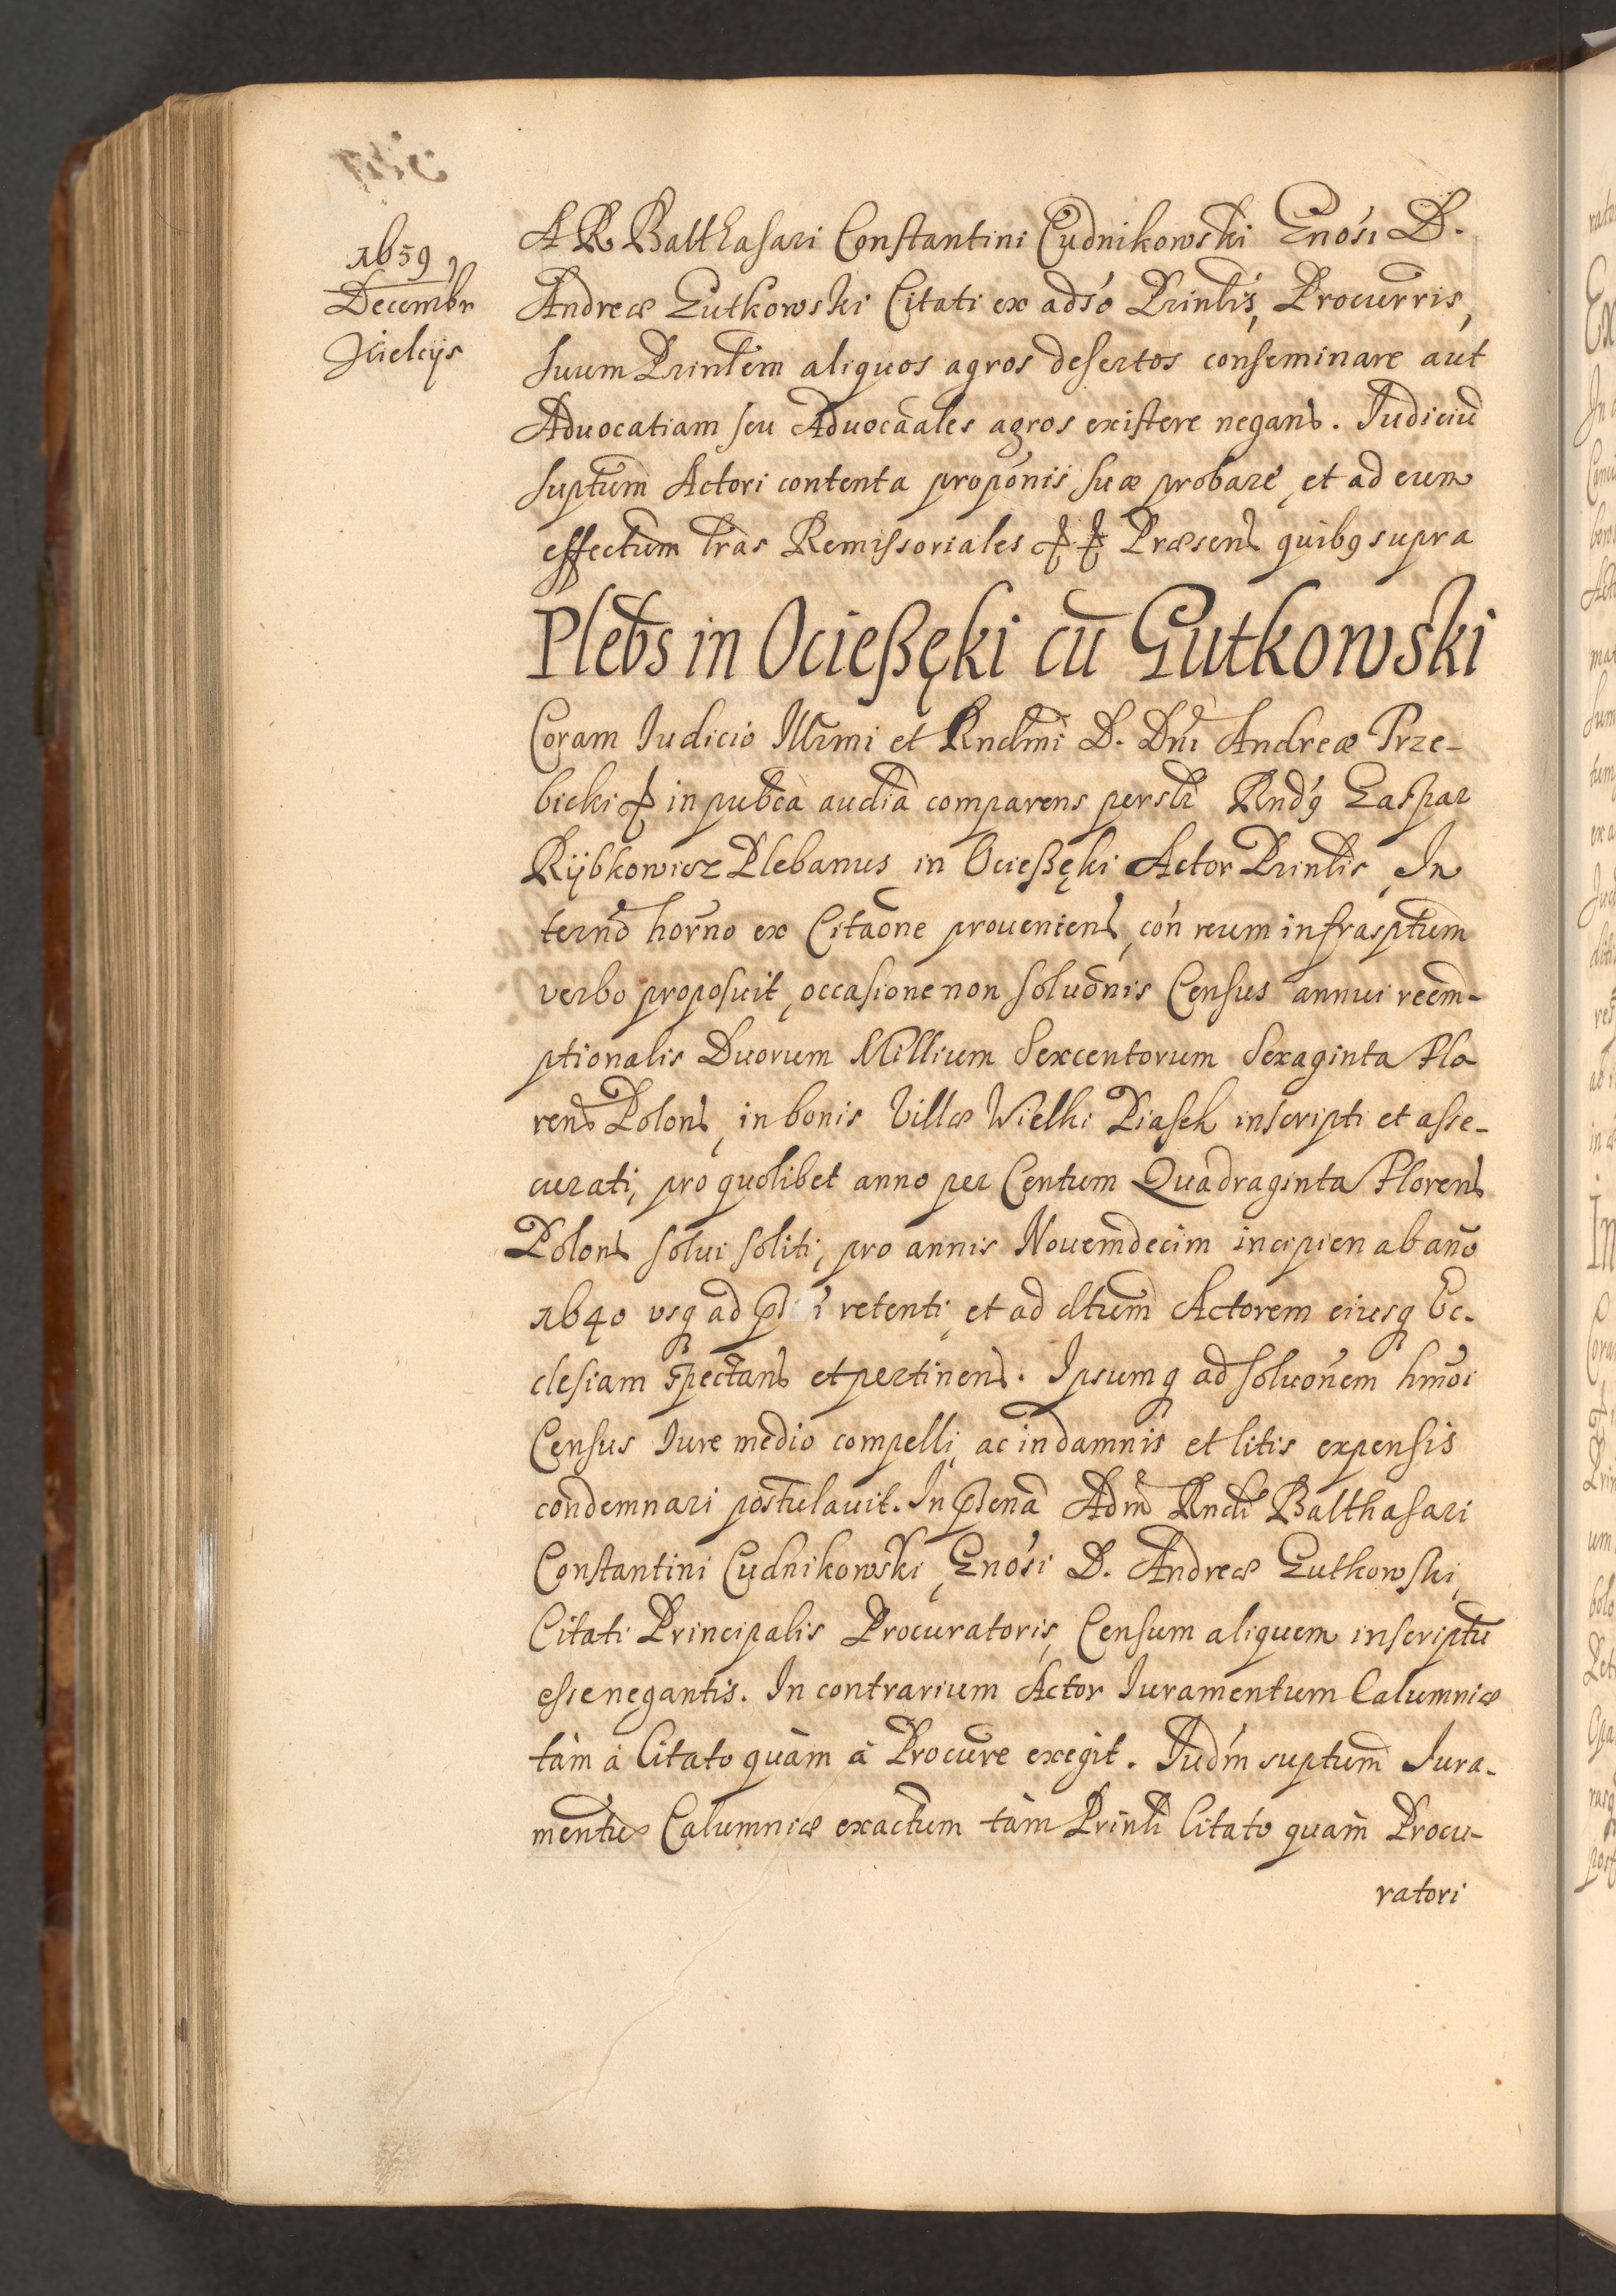 1659
Decembr
Kielcijs
A R Balthasari Constantini Cudnikowski Gnosi D.
Andreæ Gutkowski Citati ex adso Prinlis, Procurris,
suum Prinlem aliquos agros desertos conseminare aut
Aduocatiam seu Aduocaales agros existere negans. Judiciu
suptum Actori contenta proponis suæ probare, et ad eum
effectum lras Remissoriales Præsens quibꝯ supra
Plebs in Ocießęki cū Gutkowski
Coram Judicio Illrmi et Rndmi D. Dni Andreæ Trze-
bicki in pubca audia comparens persлr Rndꝯ Gaspar
Rÿbkowicz Plebanus in Ocießęki Actor Prinlis, In
termo horno ex Citaone proueniens, con reum infrasptum
verbo proposuit, occasione non soluonis Census annui reem-
ptionalis Duorum Millium Sexcentorum Sexaginta Flo
rens Polons, in bonis Villæ Wielki Piasek inscripti et asse-
curati, pro quolibet anno per Centum Quadraginta Florens
Polons solui soliti, pro annis Nouemdecim incipien ab año
1640 vsq ad retenti, et ad dtum Actorem eiusq Ec-
clesiam spectans et pertinens. Ipsumq ad soluonem hmoi
Census Iure medio compelli, ac in damnis et litis expensis
condemnari postulauit. In psena Adm Rndi Balthasari
Constantini Cudnikowski, Gnosi D. Andreæ Gutkowski,
Citati Principalis Procuratoris, Censum aliquem inscriptū
esse negantis. In contrarium Actor Iuramentum Calumniæ
tàm à Citato quàm à Procure exegit. Judm suptum Iura-
mentum Calumniæ exactum tàm Prinli Citato quàm Procu-
ratori